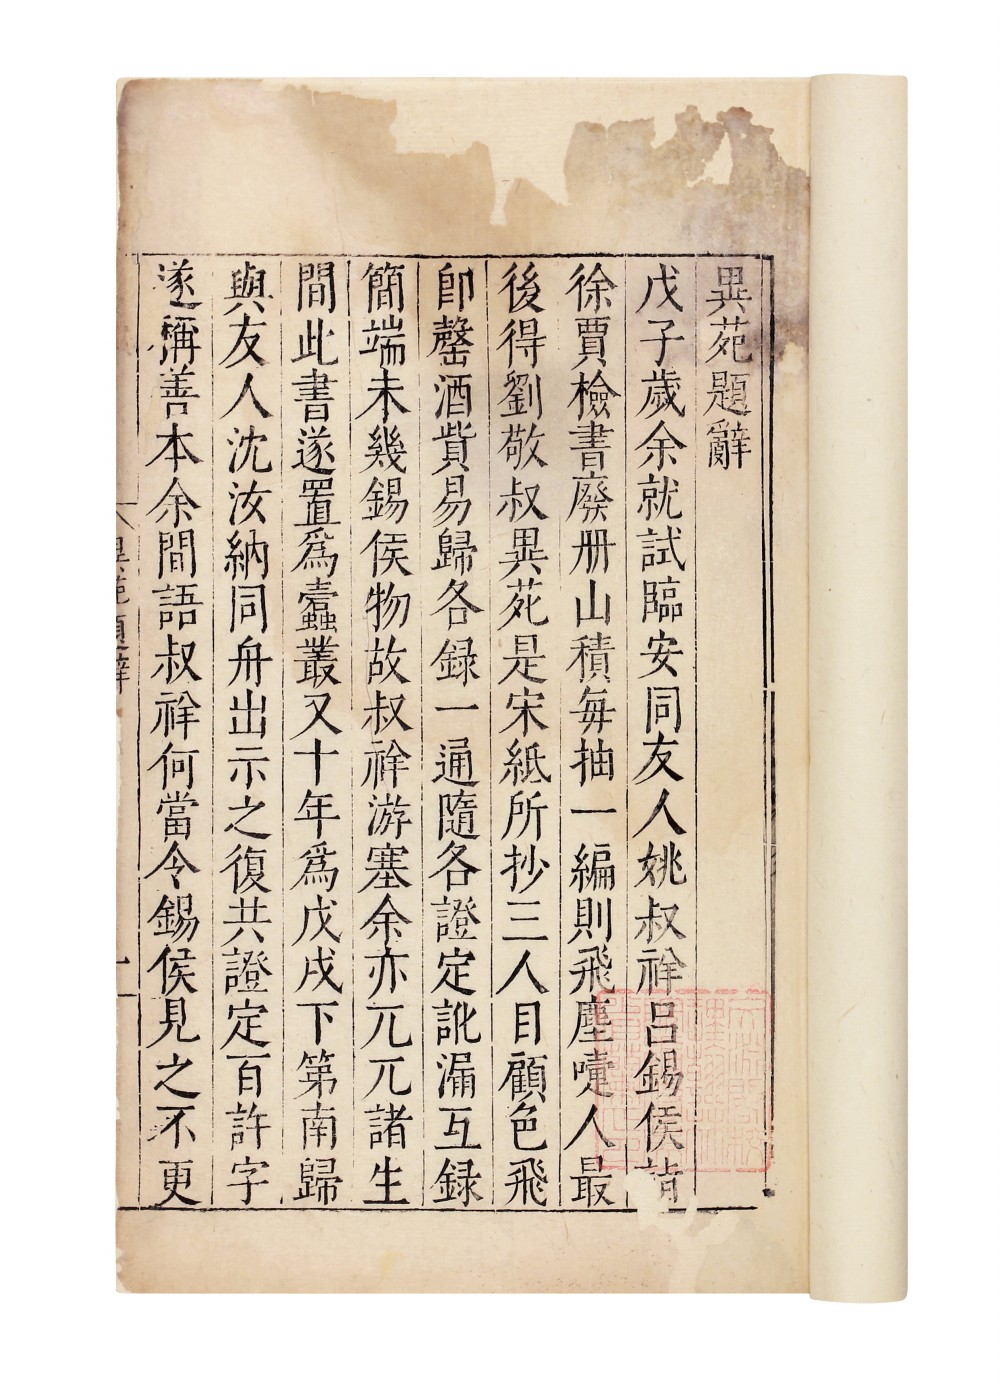 異苑題辭
戊子歲余就試臨安同友人姚叔祥呂錫侯詣
徐賈檢書廢册山積每抽一編則飛塵嚏人最
後得劉敬叔異苑是宋紙所抄三人目顧色飛
卽罄酒貲易歸各錄一通隨各證定訛漏互錄
簡端未幾錫侯物故叔祥游塞余亦兀兀諸生
間此書遂置爲蠹叢又十年爲戊戌下第南歸
與友人沈汝納同舟出示之復共證定百許字
遂稱善本余間語叔祥何當令錫侯見之不更
異苑題辭
一